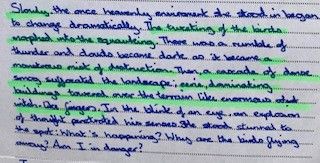 Slowly, the once heavenly environment she stood in began
to change dramatically. The tweeting of the birds
morphed into the squawking. There was a rumble of
thunder and clouds became dark as it became a
monstrous mist of destruction. Then a cascade of dense
smog suffocated the landscape; eerie, dominating
buildings towered over the terrain like enormous
witch. Dog fangers. In the blink of an eye, an explosion
of thought penetrated his senses. She stood stunned to
the spot: What's happening? Why are the birds flying
away? Am I in danger?